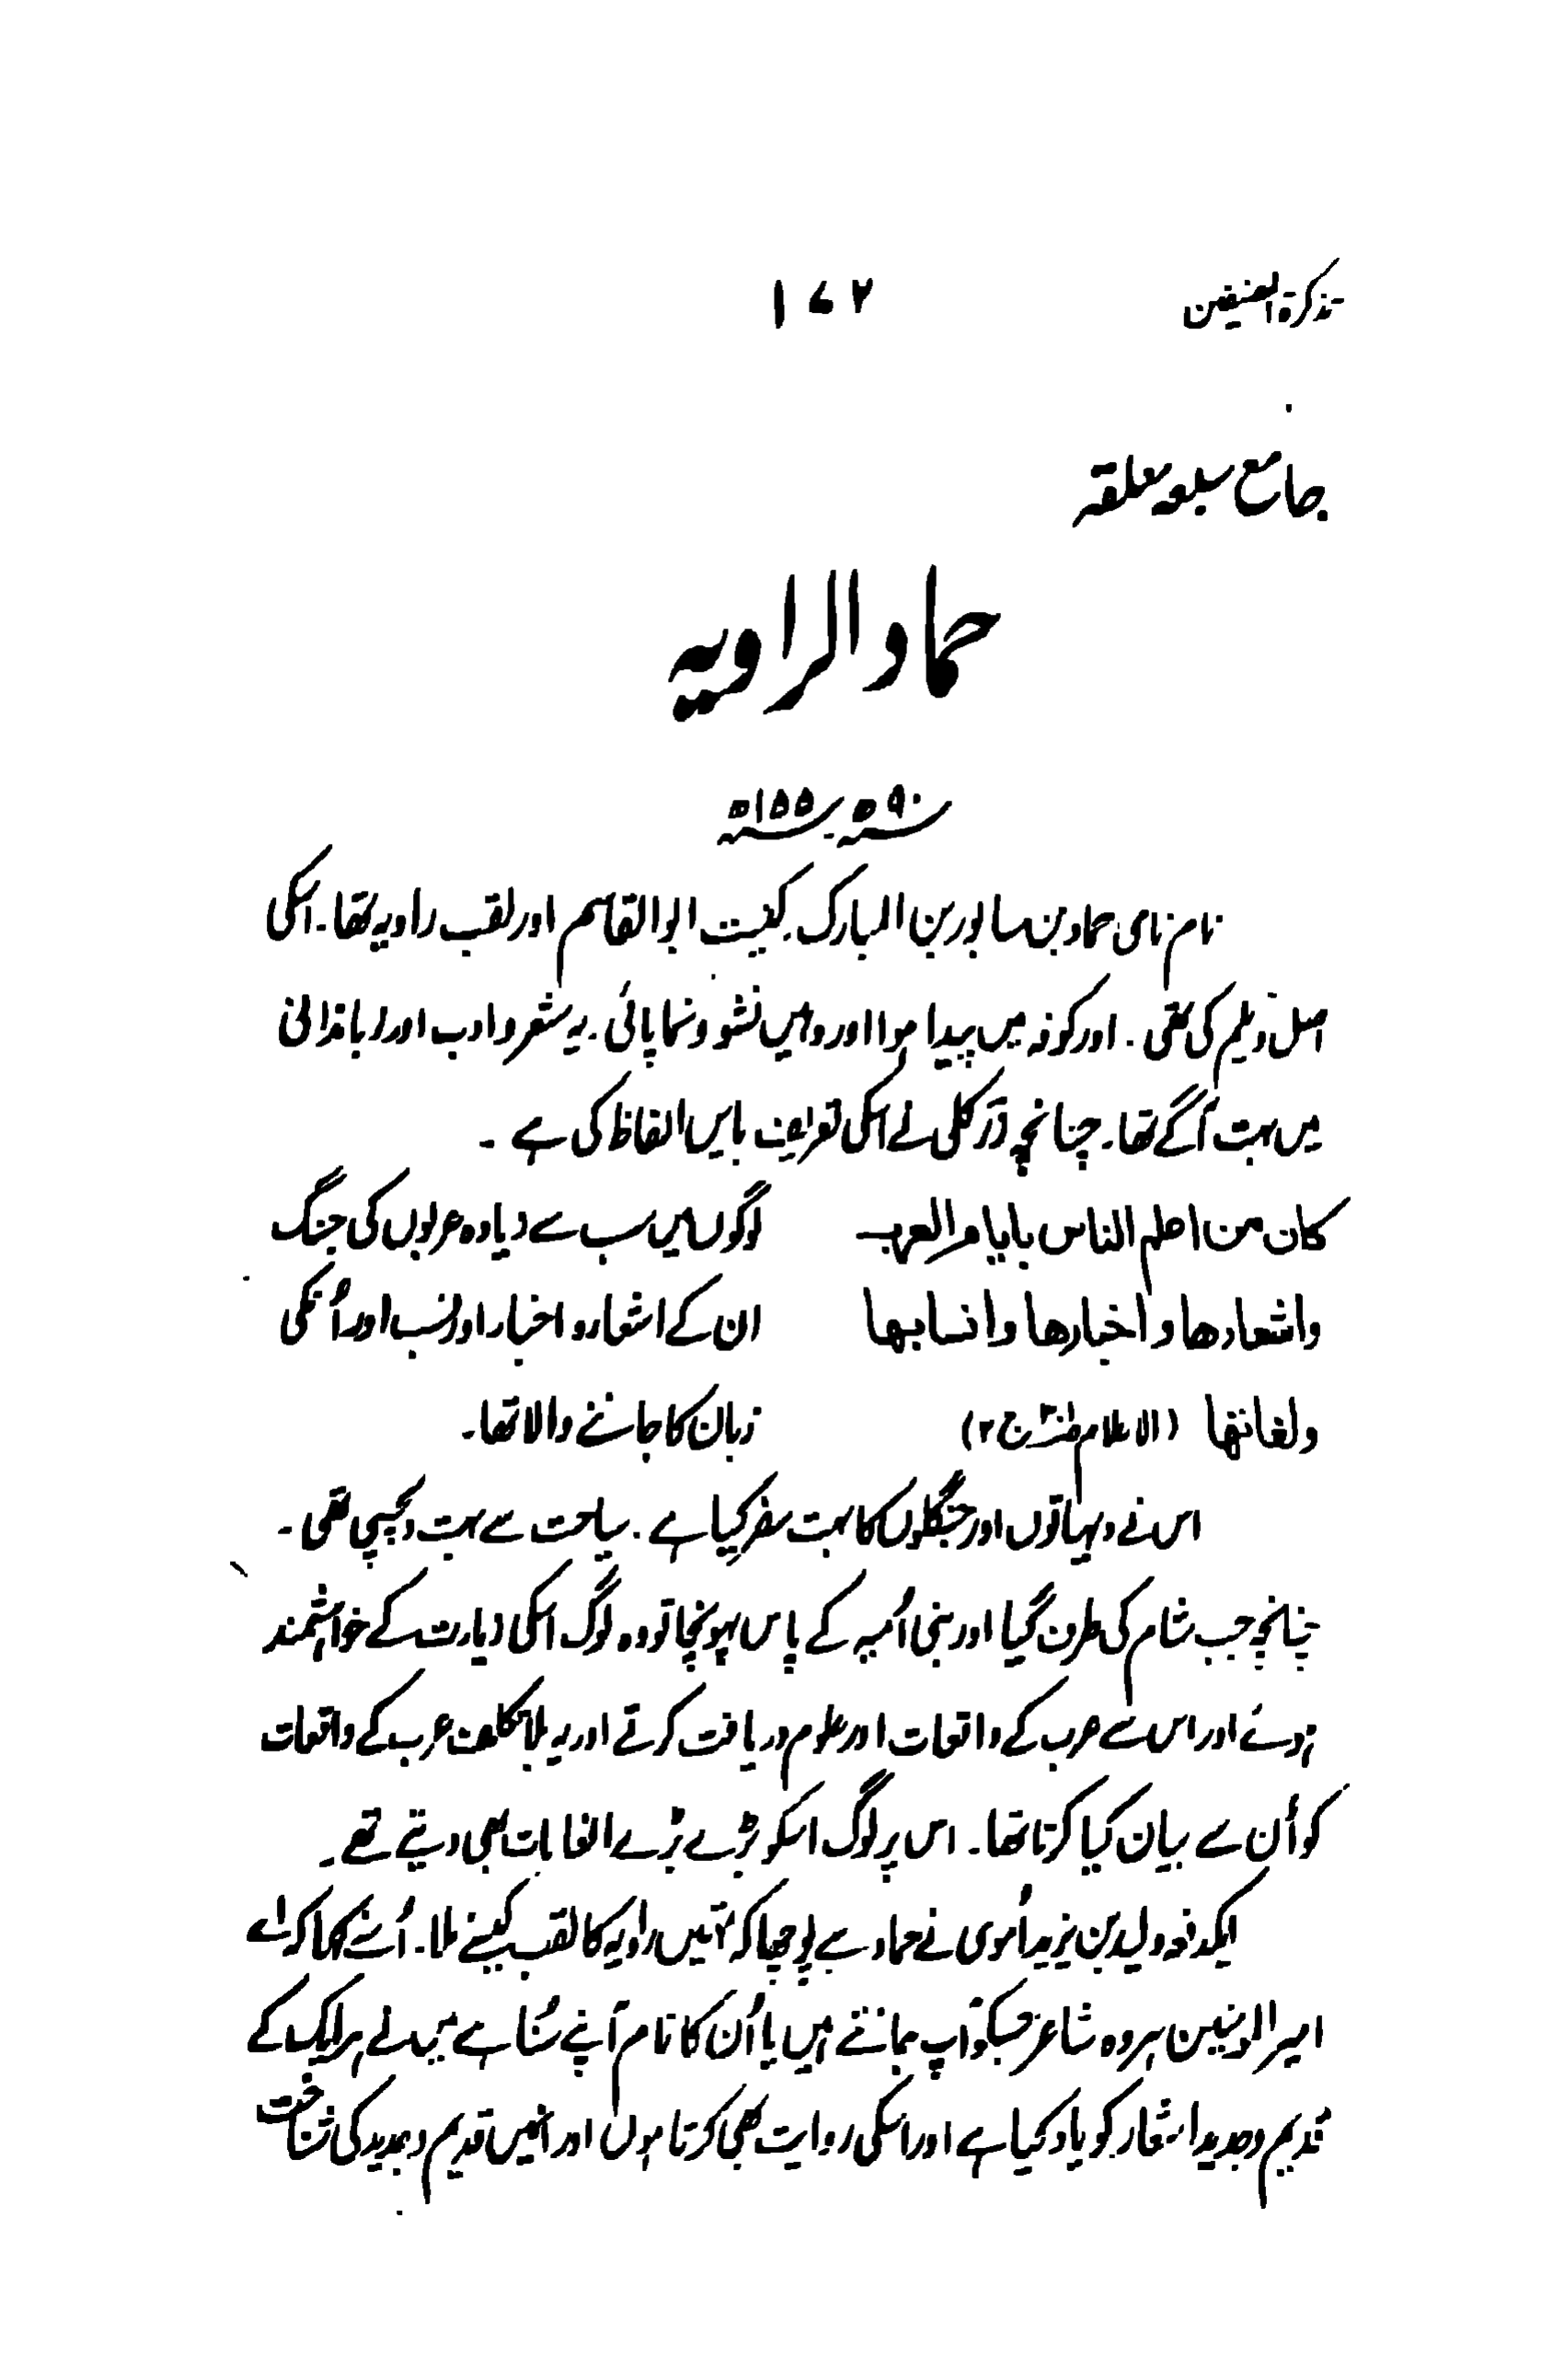 تذکرۃ المصنیفین ۱۷۲
جامع سبعہ معلقہ
حماد الراویہ
۹۰ھ - ۱۵۵ھ
نام نامی حماد بن سابور بن المبارک. کنیت ابوالقاسم اور لقب راویہ تھا۔ اسکی
اصل دیلم کی تھی ۔ اور کوفہ میں پیدا ہوا اور وہیں نشو و نما پائی ۔ یہ شعر و ادب اور زباندانی
میں بہت آگے تھا۔ چنانچہ زرکلی نے اسکی تعریف بایں الفاظ کی ہے ۔
کان من اعلم الناس بایام العرب لوگوں میں سب سے زیادہ عربوں کی جنگ
واشعارها و اخبارها وانسابها ان کے اشعار و اخبار اور نسب اور اُنکی
ولغاتها (الاعلام ج ۲) زبان کا جاننے والا تھا۔
اس نے دیہاتوں اور جنگلوں کا بہت سفر کیا ہے ۔ سیاحت سے بہت دلچسپی تھی ۔
چنانچہ جب شام کی طرف گیا اور بنی اُمیہ کے پاس پہونچا تو وہ لوگ اسکی زیارت کے خواہشمند
ہوئے اور اس سے عرب کے واقعات اور علوم دریافت کرتے اور یہ بلا تکلف عرب کے واقعات
کو اُن سے بیان کیا کرتا تھا۔ اس پر لوگ اسکو بڑے بڑے انعامات بھی دیتے تھے ۔
ایکدفعہ ولید بن یزید اُموی نے حماد سے پوچھا کہ تمہیں راویہ کا لقب کیسے ملا۔ اُسنے کہا کہ اے
امیر المومنین ہر وہ شاعر جسکو آپ جانتے ہیں یا اُن کا نام آپنے سُنا ہے میں نے ہر ایک کے
قدیم و جدید اشعار کو یاد کیا ہے اور اسکی روایت بھی کرتا ہوں اور انہیں قدیم و جدید کی شناخت